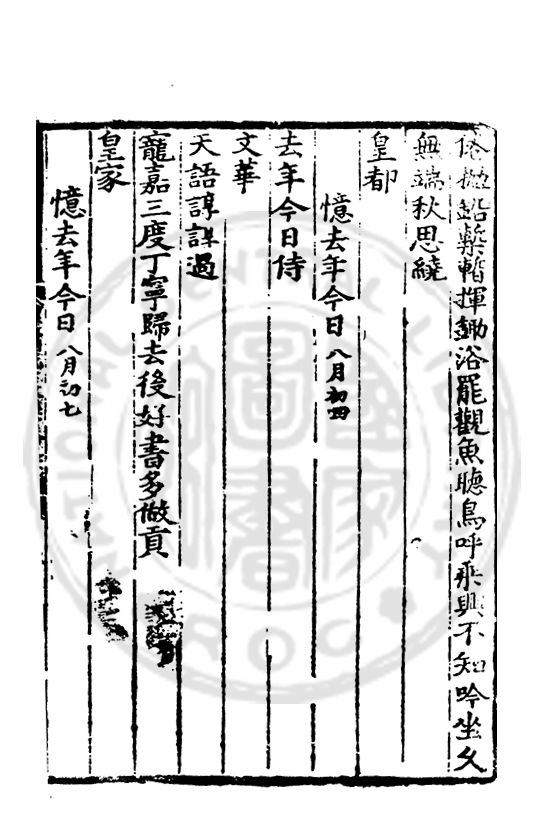 倦抛鉛槧暫揮鋤浴罷觀魚聽鳥呼乘興不知吟坐久
無端秋思繞
皇都
憶去年今日 八月初四
去年今日侍
文華
天語諄諄過
寵嘉三度丁寧歸去後好書多做貢
皇家
憶去年今日 八月初七